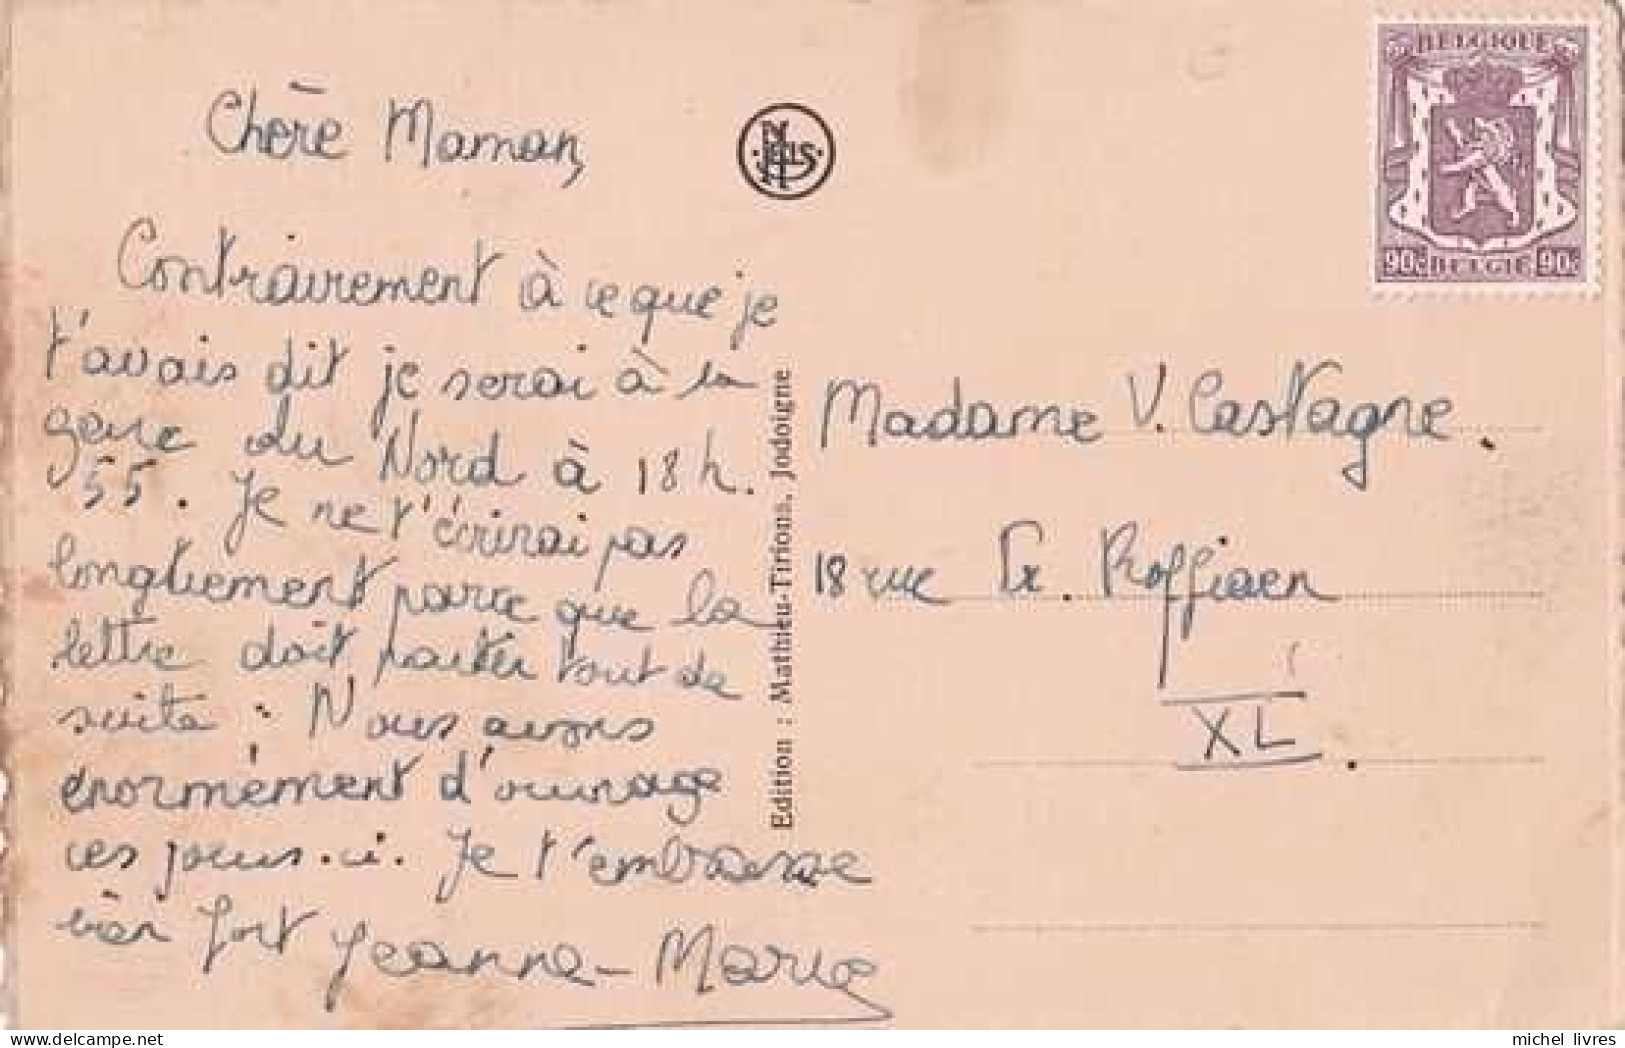 Chère Maman,
Contrairement à ce que je
t'avais dit je serai à la
gare du Nord à 18 h.
55. Je ne t'écrirai pas
longuement parce que la
lettre doit partir tout de
suite : Nous avons
énormément d'ouvrage
ces jours-ci. Je t'embrasse
bien fort Jeanne-Marie
NELS
Edition : Mathieu-Tirions, Jodoigne
BELGIQUE
90c BELGIE 90c
Madame V. Castagne.
18 rue Fr. Roffiaen
XL.
michel_livres